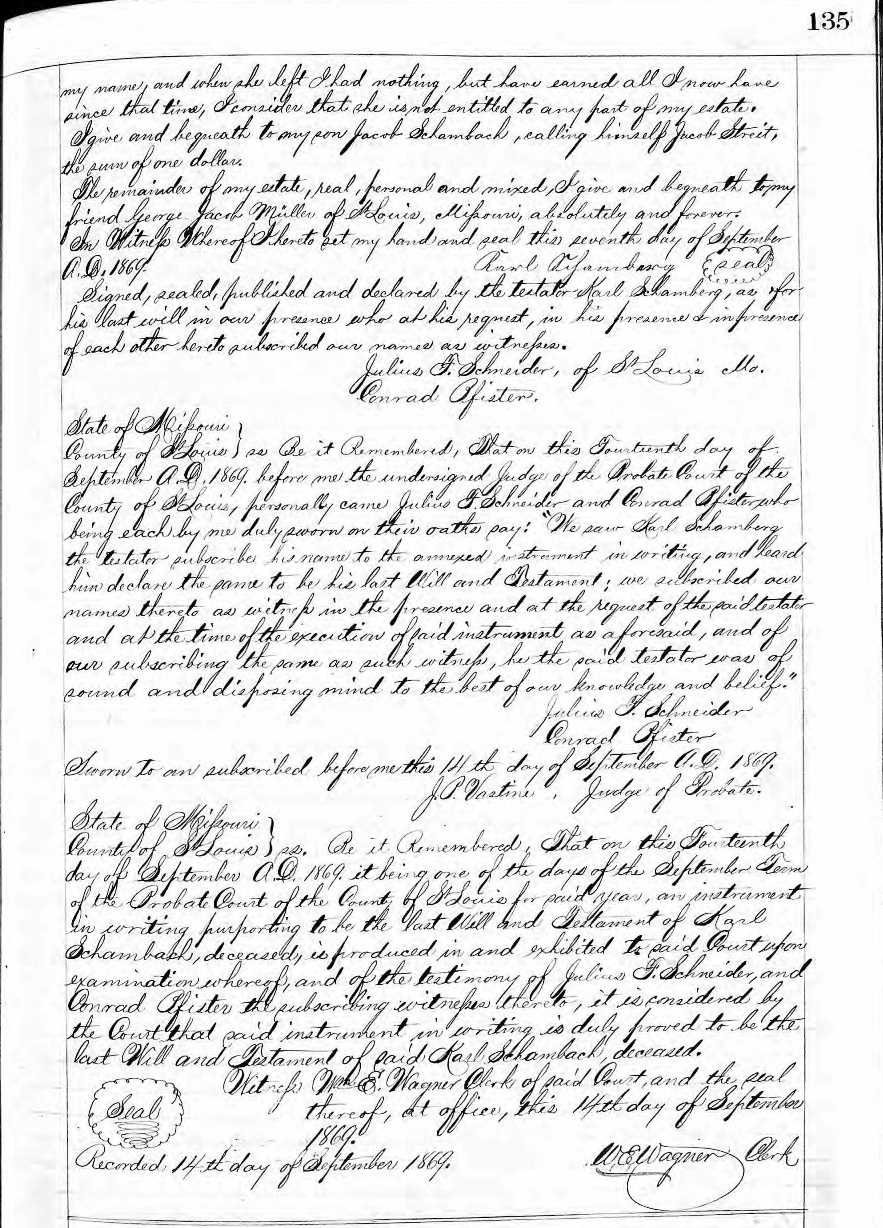 135
my name, and when she left I had nothing, but have earned all I now have
since that time, I consider that she is not entitled to any part of my estate.
I give and bequeath to my son Jacob Schambach, calling himself Jacob Streit,
the sum of one dollar.
The remainder of my estate, real, personal and mixed, I give and bequeath to my
friend George Jacob Müller of St Louis, Missouri, absolutely and forever.
In Witness Whereof I hereto set my hand and seal this seventh day of September
A.D. 1869. Karl Schamberg seal
Signed, sealed, published and declared by the testator Karl Schamberg, as & for
his last will in our presence who at his request, in his presence & in presence
of each other hereto subscribed our names as witnesses.
Julius F. Schneider, of St Louis Mo.
Conrad Pfister.
State of Missouri }
County of St Louis } ss Be it Remembered, That on this Fourteenth day of
September A.D. 1869. before me the undersigned Judge of the Probate Court of the
County of St Louis, personally came Julius F. Schneider and Conrad Pfister, who
being each by me duly sworn on their oaths say: "We saw Karl Schamberg
the testator subscribe his name to the annexed instrument in writing, and heard
him declare the same to be his last Will and Testament; we subscribed our
names thereto as witness in the presence and at the request of the said testator
and at the time of the execution of said instrument as aforesaid, and of
our subscribing the same as such witness, he the said testator was of
sound and disposing mind to the best of our knowledge and belief."
Julius F. Schneider
Conrad Pfister
Sworn to an subscribed before me this 14th day of September A.D. 1869.
J.P. Vastine, Judge of Probate.
State of Missouri }
County of St Louis } ss. Be it Remembered, That on this Fourteenth
day of September A.D. 1869. it being one of the days of the September Term
of the Probate Court of the County of St Louis for said year, an instrument
in writing purporting to be the last Will and Testament of Karl
Schambach, deceased, is produced in and exhibited to said Court upon
examination whereof, and of the testimony of Julius F. Schneider, and
Conrad Pfister the subscribing witnesses thereto, it is considered by
the Court that said instrument in writing is duly proved to be the
last Will and Testament of said Karl Schambach, deceased.
Witness Wm E. Wagner Clerk of said Court, and the seal
Seal thereof, at office, this 14th day of September
1869.
Recorded 14th day of September 1869. W.E. Wagner Clerk